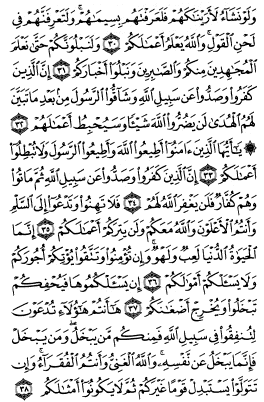 وَلَوْ نَشَآءُ لَأَرَيْنَٰكَهُمْ فَلَعَرَفْتَهُم بِسِيمَٰهُمْ ۚ وَلَتَعْرِفَنَّهُمْ فِى
لَحْنِ ٱلْقَوْلِ ۚ وَٱللَّهُ يَعْلَمُ أَعْمَٰلَكُمْ ٣٠ وَلَنَبْلُوَنَّكُمْ حَتَّىٰ نَعْلَمَ
ٱلْمُجَٰهِدِينَ مِنكُمْ وَٱلصَّٰبِرِينَ وَنَبْلُوَا۟ أَخْبَارَكُمْ ٣١ إِنَّ ٱلَّذِينَ
كَفَرُوا۟ وَصَدُّوا۟ عَن سَبِيلِ ٱللَّهِ وَشَآقُّوا۟ ٱلرَّسُولَ مِنۢ بَعْدِ مَا تَبَيَّنَ
لَهُمُ ٱلْهُدَىٰ لَن يَضُرُّوا۟ ٱللَّهَ شَيْـًٔا وَسَيُحْبِطُ أَعْمَٰلَهُمْ ٣٢
۞ يَٰٓأَيُّهَا ٱلَّذِينَ ءَامَنُوٓا۟ أَطِيعُوا۟ ٱللَّهَ وَأَطِيعُوا۟ ٱلرَّسُولَ وَلَا تُبْطِلُوٓا۟
أَعْمَٰلَكُمْ ٣٣ إِنَّ ٱلَّذِينَ كَفَرُوا۟ وَصَدُّوا۟ عَن سَبِيلِ ٱللَّهِ ثُمَّ مَاتُوا۟
وَهُمْ كُفَّارٌ فَلَن يَغْفِرَ ٱللَّهُ لَهُمْ ٣٤ فَلَا تَهِنُوا۟ وَتَدْعُوٓا۟ إِلَى ٱلسَّلْمِ
وَأَنتُمُ ٱلْأَعْلَوْنَ وَٱللَّهُ مَعَكُمْ وَلَن يَتِرَكُمْ أَعْمَٰلَكُمْ ٣٥ إِنَّمَا
ٱلْحَيَوٰةُ ٱلدُّنْيَا لَعِبٌ وَلَهْوٌ ۚ وَإِن تُؤْمِنُوا۟ وَتَتَّقُوا۟ يُؤْتِكُمْ أُجُورَكُمْ
وَلَا يَسْـَٔلْكُمْ أَمْوَٰلَكُمْ ٣٦ إِن يَسْـَٔلْكُمُوهَا فَيُحْفِكُمْ
تَبْخَلُوا۟ وَيُخْرِجْ أَضْغَٰنَكُمْ ٣٧ هَٰٓأَنتُمْ هَٰٓؤُلَآءِ تُدْعَوْنَ
لِتُنفِقُوا۟ فِى سَبِيلِ ٱللَّهِ فَمِنكُم مَّن يَبْخَلُ ۖ وَمَن يَبْخَلْ
فَإِنَّمَا يَبْخَلُ عَن نَّفْسِهِۦ ۚ وَٱللَّهُ ٱلْغَنِىُّ وَأَنتُمُ ٱلْفُقَرَآءُ ۚ وَإِن
تَتَوَلَّوْا۟ يَسْتَبْدِلْ قَوْمًا غَيْرَكُمْ ثُمَّ لَا يَكُونُوٓا۟ أَمْثَٰلَكُم ٣٨